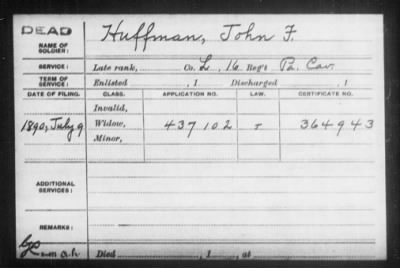 DEAD Huffman, John F.
NAME OF
SOLDIER:
SERVICE: Late rank, Co. L, 16 Reg't Pa. Cav.
TERM OF
SERVICE: Enlisted , 1 Discharged , 1
DATE OF FILING. CLASS. APPLICATION NO. LAW. CERTIFICATE NO.
Invalid,
1890, July 9 Widow, 437102 364943
Minor,
ADDITIONAL
SERVICES:
REMARKS:
Died , 1 , at